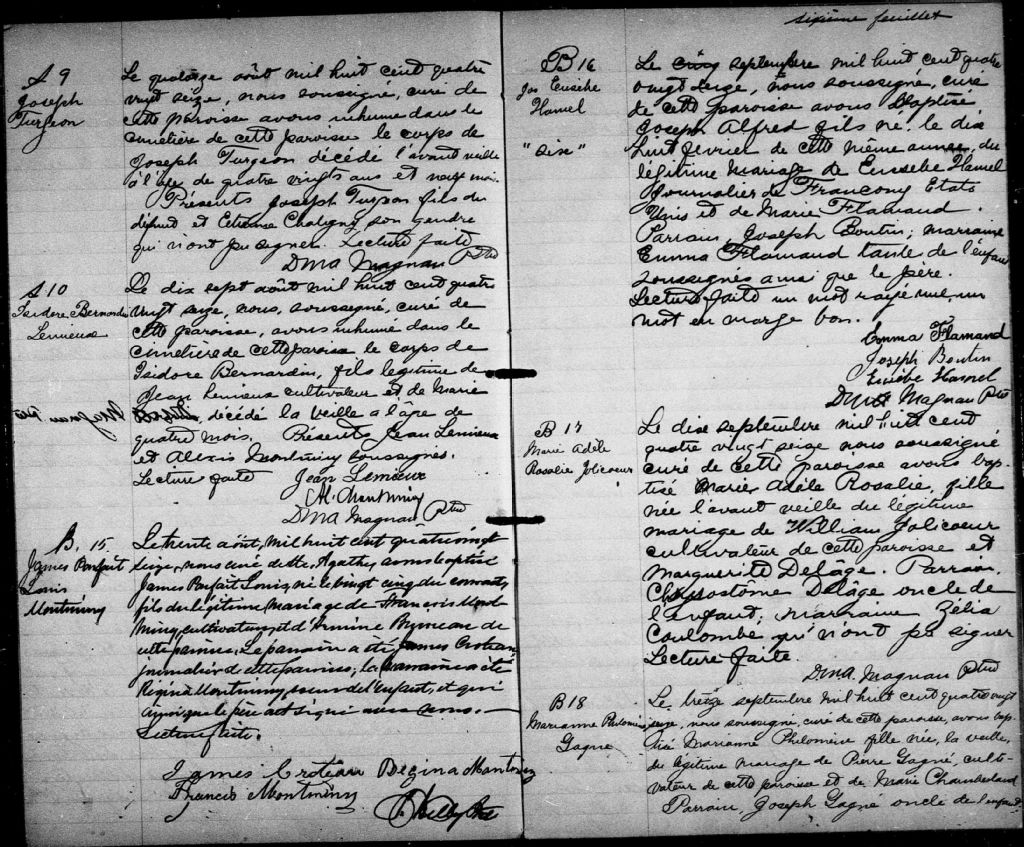 S 9
Joseph
Turgeon
Le quatorze août mil huit cent quatre
vingt seize, nous soussigné, curé de
cette paroisse avons inhumé dans le
cimetière de cette paroisse le corps de
Joseph Turgeon décédé l'avant veille
à l'âge de quatre vingts ans et neuf mois.
Présents Joseph Turgeon fils du
défunt et Etienne son gendre
qui n'ont pu signer. Lecture faite
DMA Magnan Ptre
S 10
Isidore Bernardin
Lemieux
Le dix sept août mil huit cent quatre
vingt seize, nous, soussigné, curé de
cette paroisse, avons inhumé dans le
cimetière de cette paroisse le corps de
Isidore Bernardin, fils légitime de
Jean Lemieux cultivateur et de Marie
décédé la veille à l'âge de
quatre mois. Présents Jean Lemieux
et Alexis Montminy soussignés.
Lecture faite Jean Lemieux
Al. Montminy
DMA Magnan Ptre
B. 15
James Parfait
Louis
Montminy
Le trente août, mil huit cent quatre vingt
seize, nous curé de Ste. Agathe avons baptisé
James Parfait Louis, né le vingt cinq du courant,
fils du légitime mariage de François Mont-
miny, cultivateur, et d'Armine de
cette paroisse. Le parrain a été James Croteau
journalier de cette paroisse; la marraine a été
Régina Montminy, soeur de l'enfant, et qui
ainsi que le père ont signé avec nous.
Lecture faite.
James Croteau Regina Montminy
Francis Montminy
Ptre
sixième feuillet
B 16
Jos Eusèbe
Hamel
"dix"
Le cinq septembre mil huit cent quatre
vingt seize, nous soussigné, curé
de cette paroisse avons baptisé
Joseph Alfred fils né le dix
huit février de cette même année, du
légitime mariage de Eusèbe Hamel
journalier de Francony Etats
Unis et de Marie Flamand.
Parrain, Joseph Boutin; marraine
Emma Flamand tante de l'enfant
soussignés ainsi que le père.
Lecture faite un mot rayé nul, un
mot en marge bon.
Emma Flamand
Joseph Boutin
Eusèbe Hamel
DMA Magnan Ptre
B 17
Marie Adèle
Rosalie Jolicoeur
Le dix septembre mil huit cent
quatre vingt seize nous soussigné
curé de cette paroisse avons bap-
tisé Marie Adèle Rosalie, fille
née l'avant veille du légitime
mariage de William Jolicoeur
cultivateur de cette paroisse et
Marguerite Delâge. Parrain,
Chrysostôme Delâge oncle de
l'enfant; marraine Zélia
Coulombe qui n'ont pu signer
Lecture faite.
DMA Magnan Ptre
B 18
Marianne Philomène
Gagné
Le treize septembre mil huit cent quatre vingt
seize, nous soussigné, curé de cette paroisse, avons bap-
tisé Marianne Philomène fille née, la veille,
du légitime mariage de Pierre Gagné, culti-
vateur de cette paroisse et de Marie Chamberland
Parrain, Joseph Gagné oncle de l'enfant